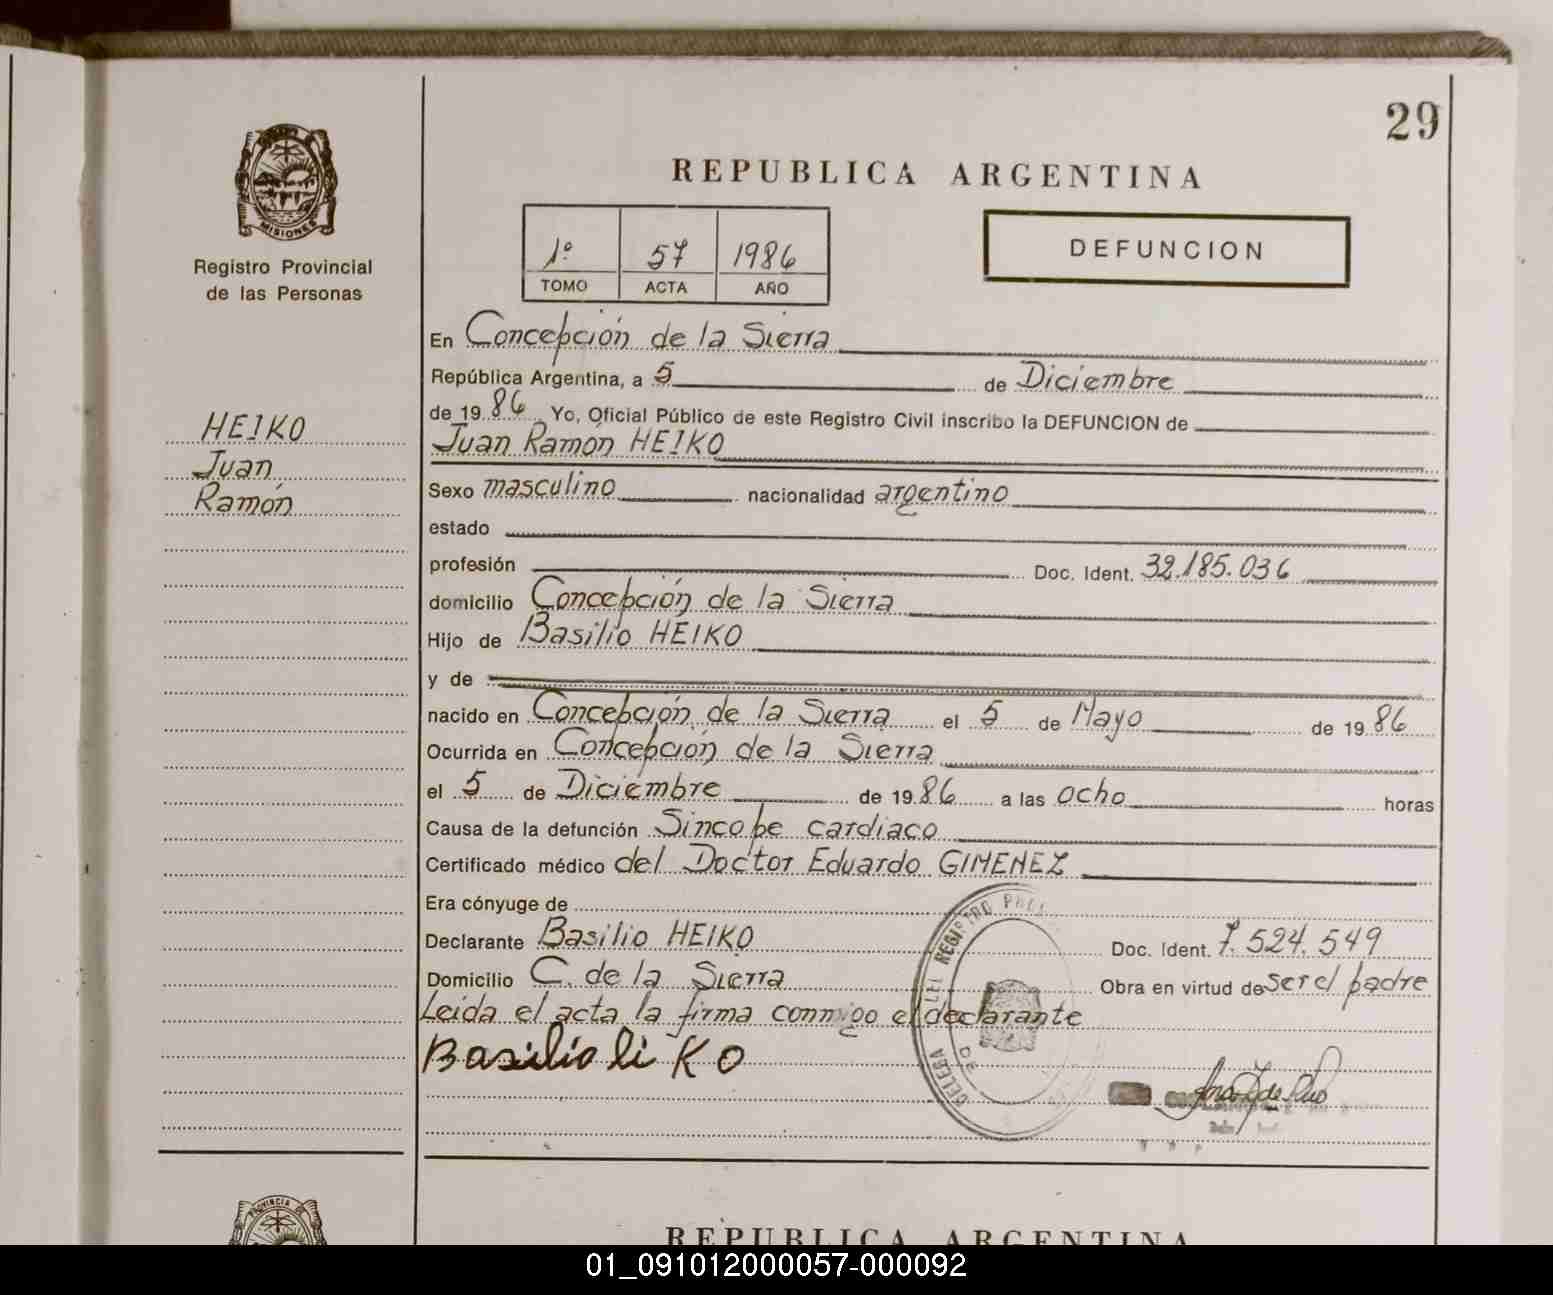 29
REPUBLICA ARGENTINA
MISIONES
Registro Provincial
de las Personas
1º 57 1986
TOMO ACTA AÑO
DEFUNCION
HEIKO
Juan
Ramón
En Concepción de la Sierra
República Argentina, a 5 de Diciembre
de 1986 Yo, Oficial Público de este Registro Civil inscribo la DEFUNCION de
Juan Ramón HEIKO
Sexo masculino nacionalidad argentino
estado
profesión Doc. Ident. 32.185.036
domicilio Concepción de la Sierra
Hijo de Basilio HEIKO
y de
nacido en Concepción de la Sierra el 5 de Mayo de 1986
Ocurrida en Concepción de la Sierra
el 5 de Diciembre de 1986 a las ocho horas
Causa de la defunción Sincope cardiaco
Certificado médico del Doctor Eduardo GIMENEZ
Era cónyuge de
Declarante Basilio HEIKO Doc. Ident. 7.524.549
Domicilio C. de la Sierra Obra en virtud de ser el padre
Leida el acta la firma conmigo el declarante
Basilio li KO
PROVINCIA DE
REPUBLICA ARGENTINA
01_091012000057-000092